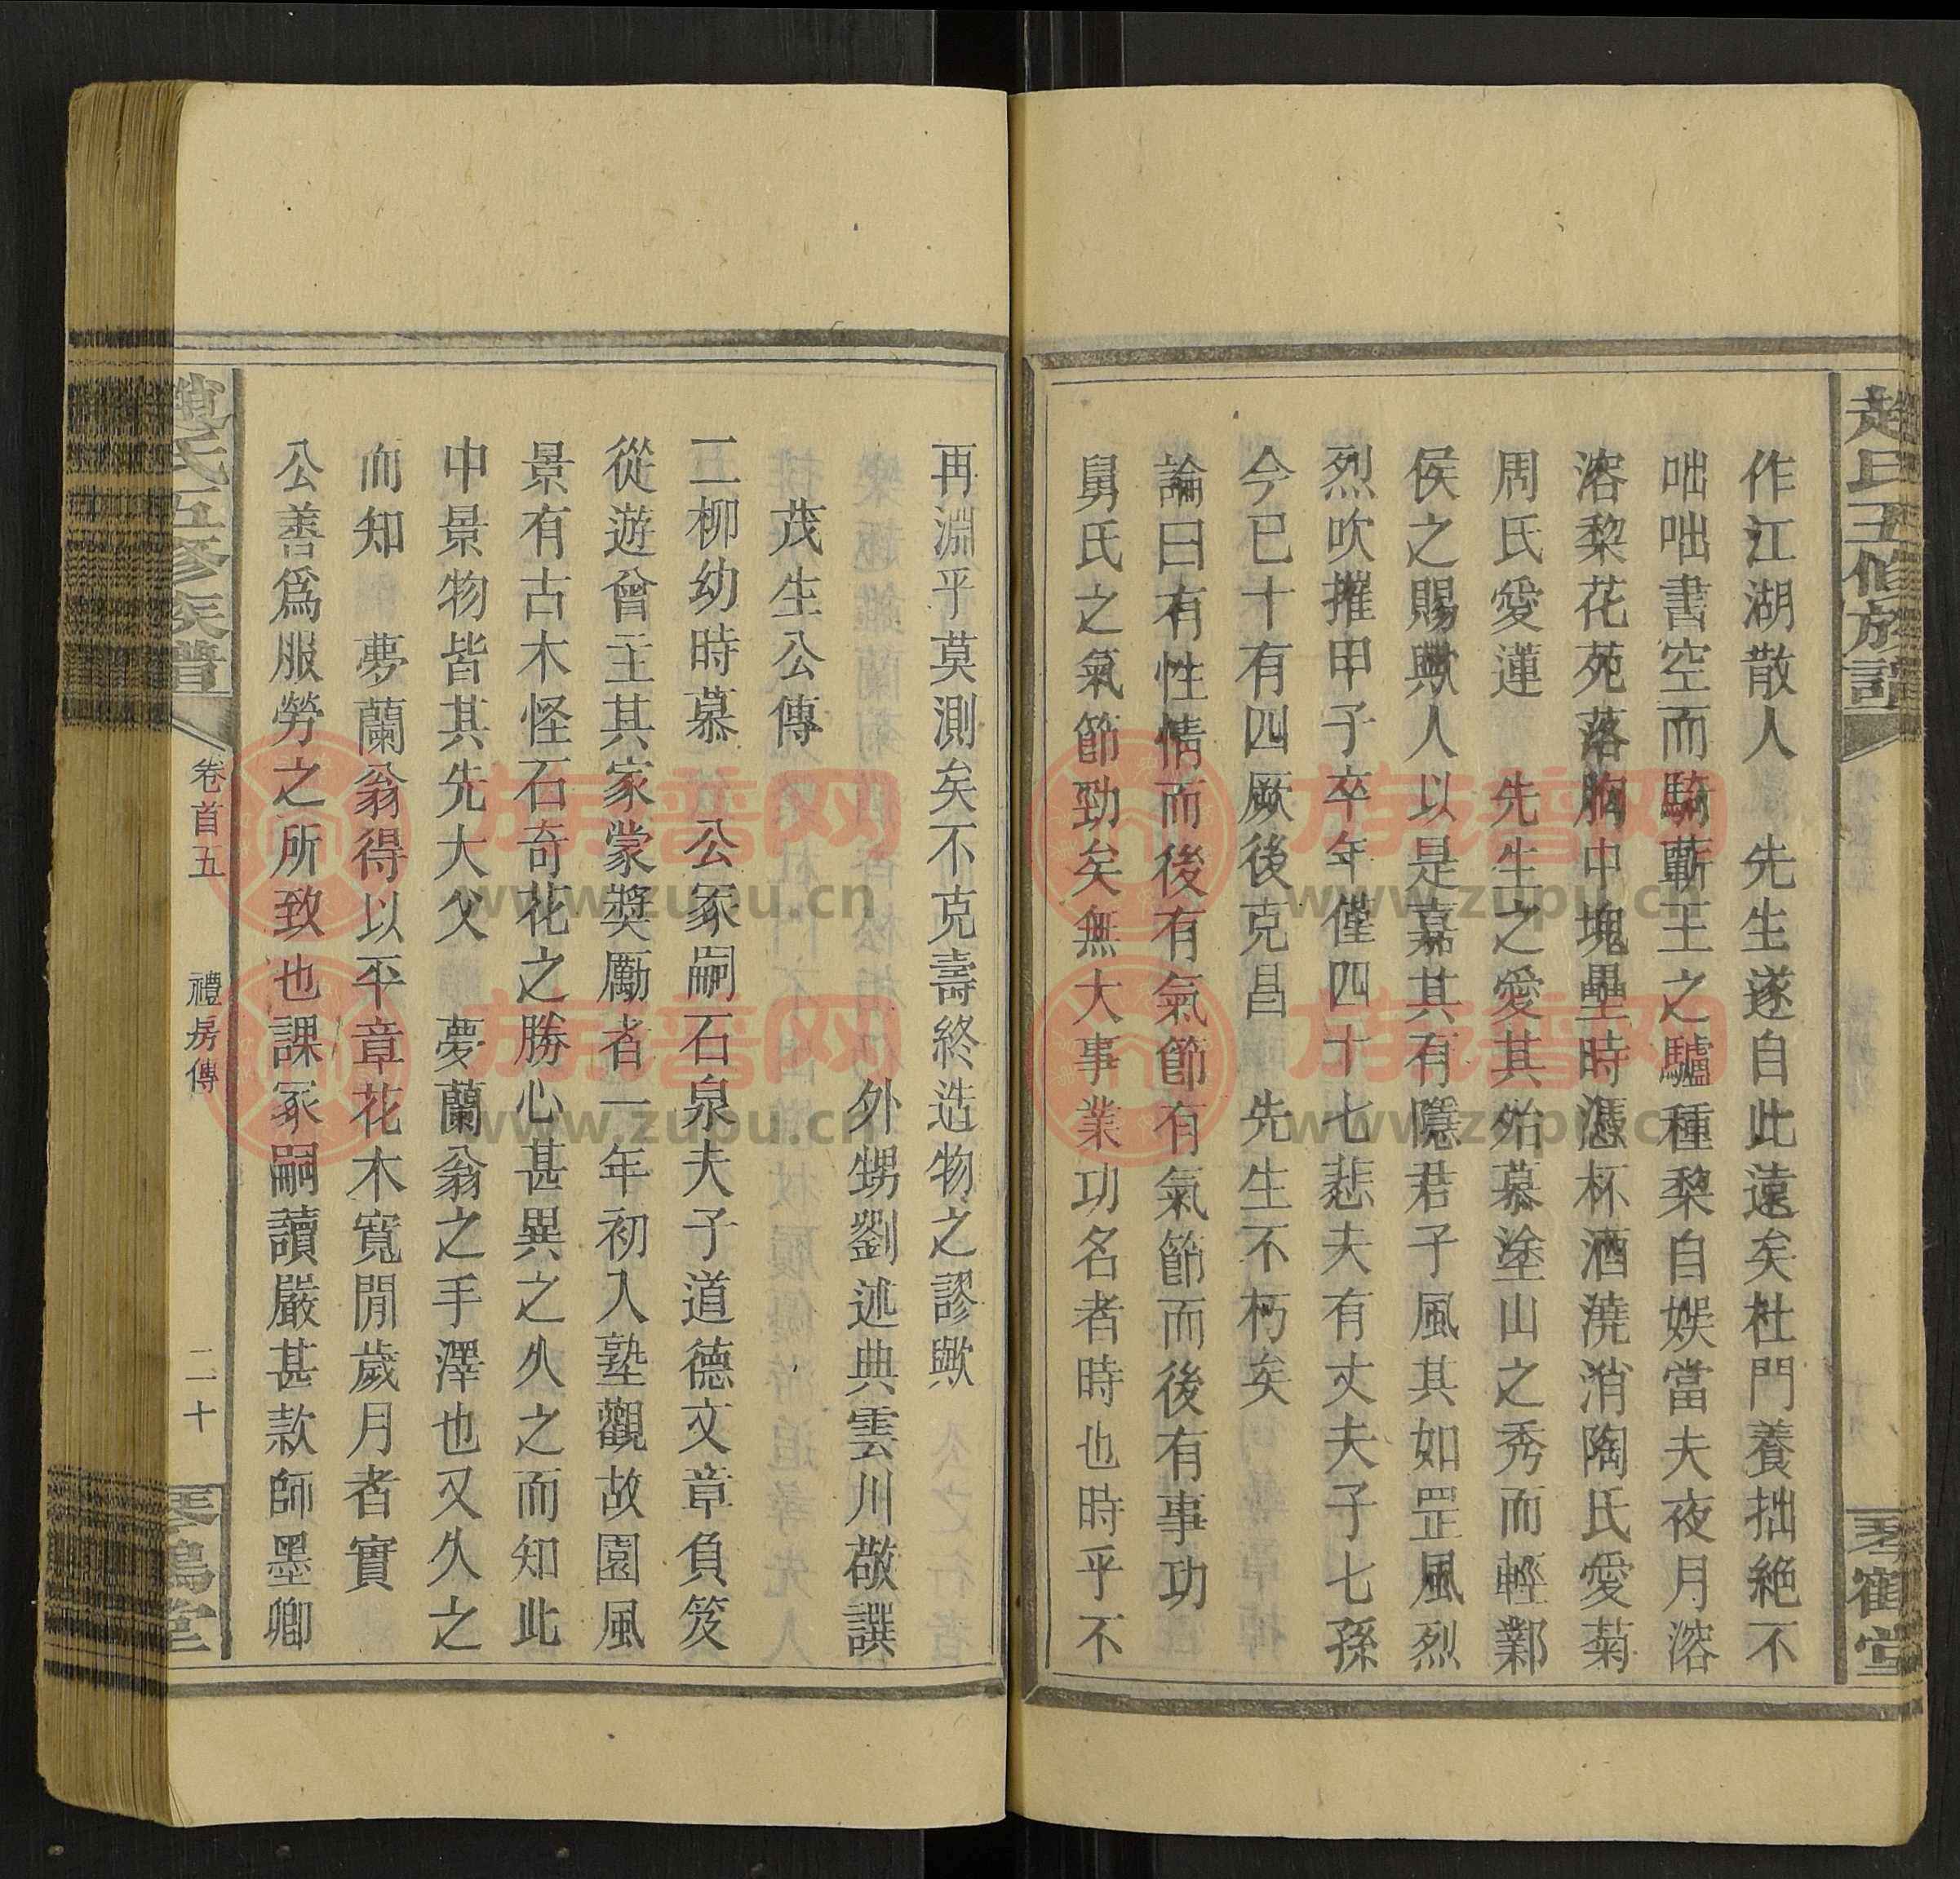 趙氏五修族譜
琴鶴堂
作江湖散人　先生遂自此遠矣杜門養拙絶不
咄咄書空而騎蘄王之驢種黎自娛當夫夜月溶
溶黎花苑落胸中塊壘時憑杯酒澆消陶氏愛菊
周氏愛蓮　先生之愛其殆慕塗山之秀而輕鄴
侯之賜歟人以是嘉其有隱君子風其如罡風烈
烈吹摧甲子卒年僅四十七悲夫有丈夫子七孫
今已十有四厥後克昌　先生不朽矣
論曰有性情而後有氣節有氣節而後有事功
舅氏之氣節勁矣無大事業功名者時也時乎不
再淵乎莫測矣不克壽終造物之謬歟
外甥劉述典雲川敬譔
茂生公傳
二柳幼時慕　公冢嗣石泉夫子道德文章負笈
從遊曾主其家蒙獎勵者一年初入塾觀故園風
景有古木怪石奇花之勝心甚異之久之而知此
中景物皆其先大父　夢蘭翁之手澤也又久之
而知　夢蘭翁得以平章花木寬閒歲月者實
公善爲服勞之所致也課冢嗣讀嚴甚款師墨卿
趙氏五修族譜
卷首五
禮房傳
二十
琴鶴堂
族譜网
www.zupu.cn
族譜网
www.zupu.cn
族譜网
www.zupu.cn
族譜网
www.zupu.cn